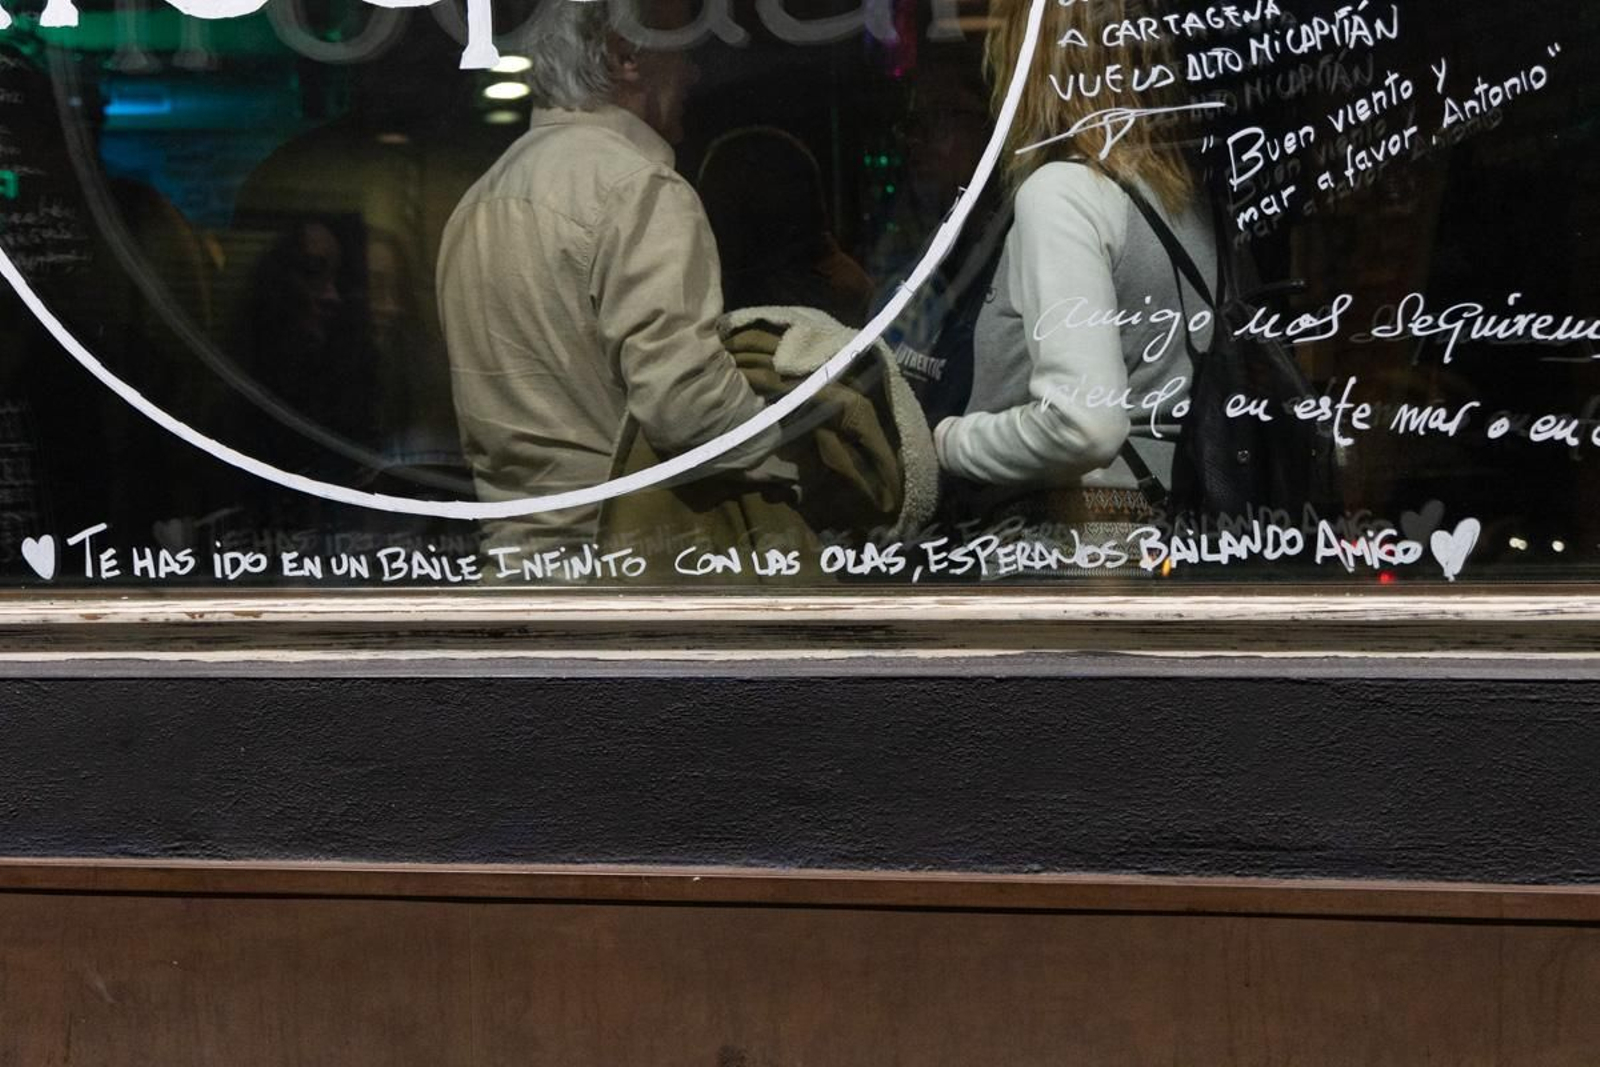 A CARTAGENA
VUELA ALTO Mi CAPITÁN
"Buen viento y
mar a favor. Antonio"
Amigo nos seguiremos
viendo en este mar o en
AUTHENTIC
♥ TE HAS iDO EN UN BAiLE INFiNiTO CON LAS OLAS, ESPERANOS BAiLANDO AMiGO ♥